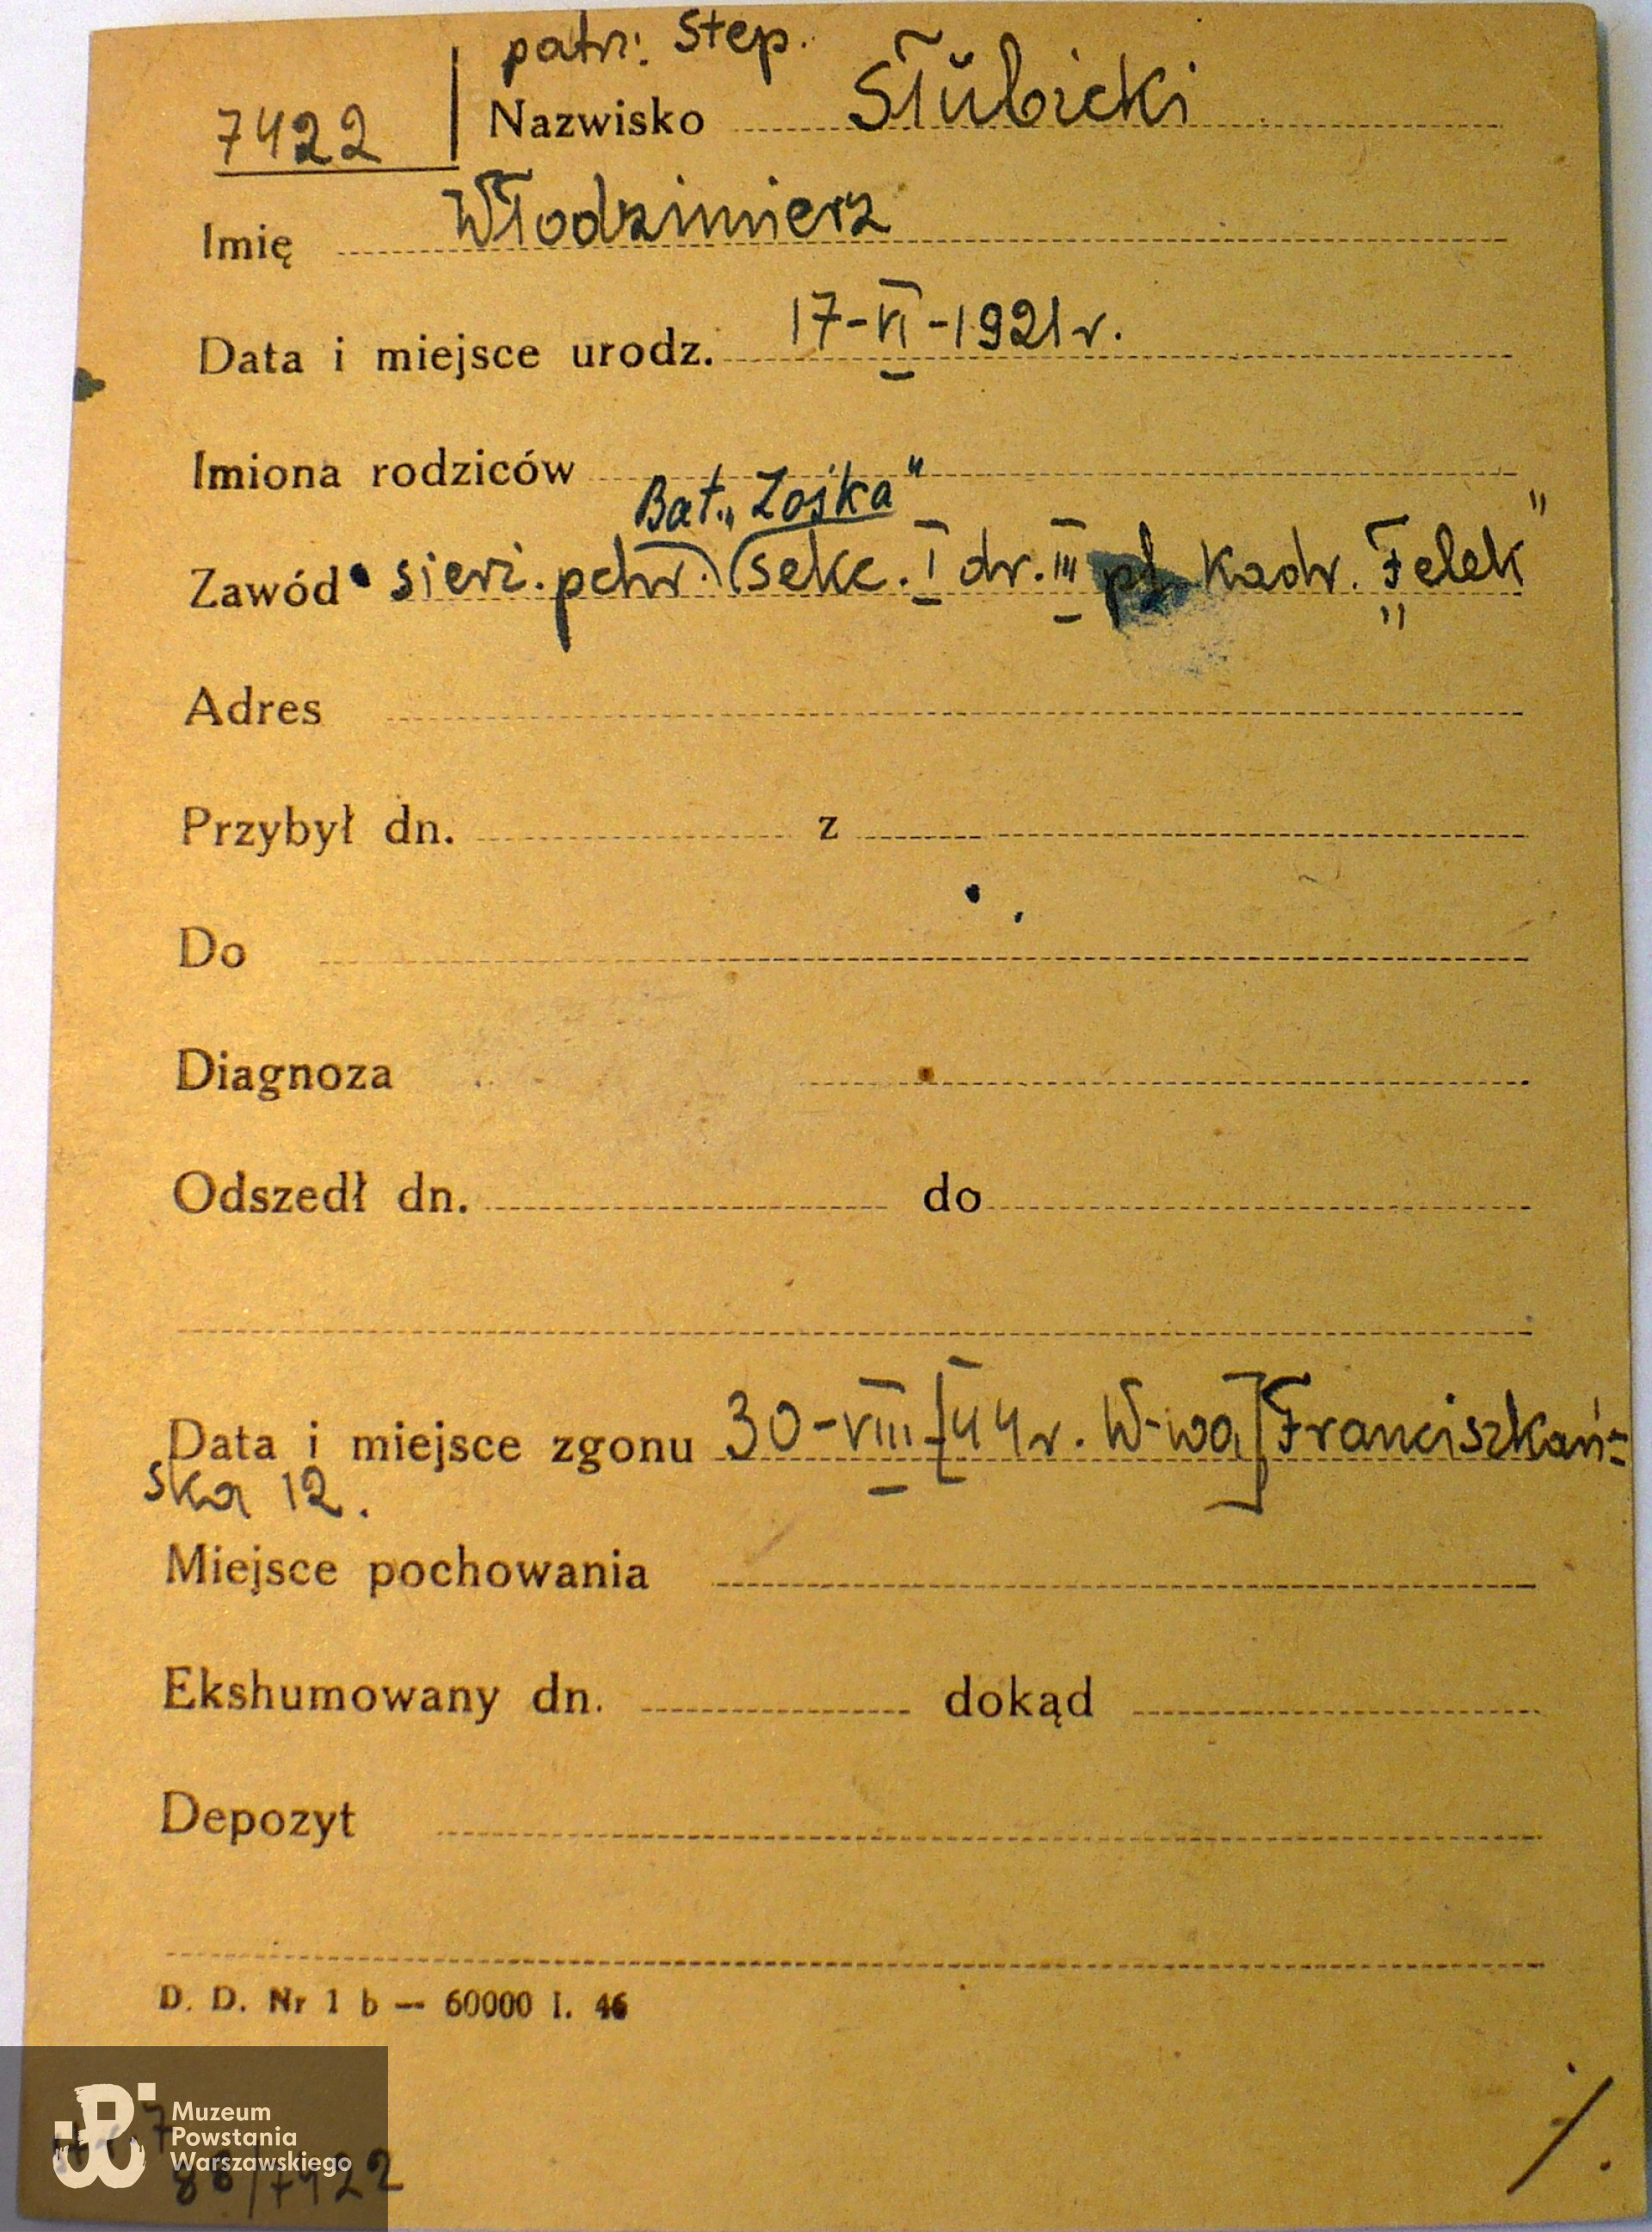 patrz: Step.
7422
Nazwisko Słubicki
Imię Włodzimierz
Data i miejsce urodz. 17-VI-1921 r.
Imiona rodziców
Bat. „Zośka"
Zawód sierż. pchr. (sekc. I dr. III pl. Kadr. „Felek"
Adres
Przybył dn. z
Do
Diagnoza
Odszedł dn. do
Data i miejsce zgonu 30-VIII-[44 r. W-wa] Franciszkań=
ska 12.
Miejsce pochowania
Ekshumowany dn. dokąd
Depozyt
D. D. Nr 1 b — 60000 I. 46
Muzeum
Powstania
Warszawskiego
88/7422